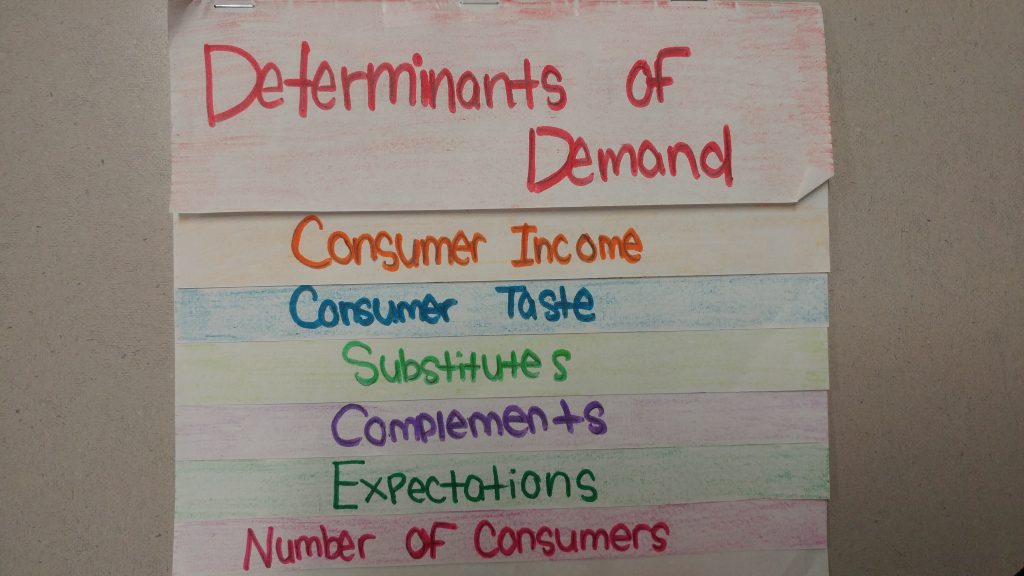 Determinants of
Demand
Consumer Income
Consumer Taste
Substitutes
Complements
Expectations
Number of Consumers